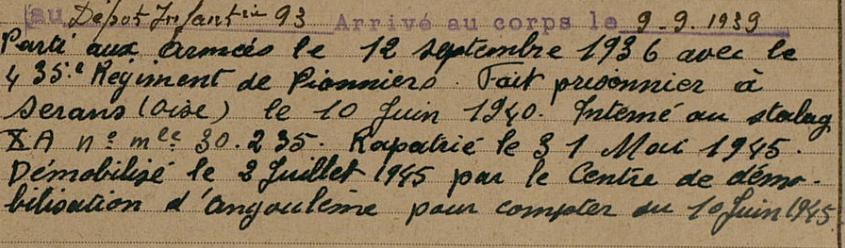 au Dépot Infanterie 93 Arrivé au corps le 9-9.1939
Parti aux armées le 12 septembre 1936 avec le
435.e Régiment de Pionniers. Fait prisonnier à
Serans (Oise) le 10 Juin 1940. Interné au stalag
XA n° mle 30.235. Rapatrié le 31 Mai 1945.
Démobilisé le 2 Juillet 1945 par le Centre de démo-
bilisation d'Angoulême pour compter du 10 Juin 1945